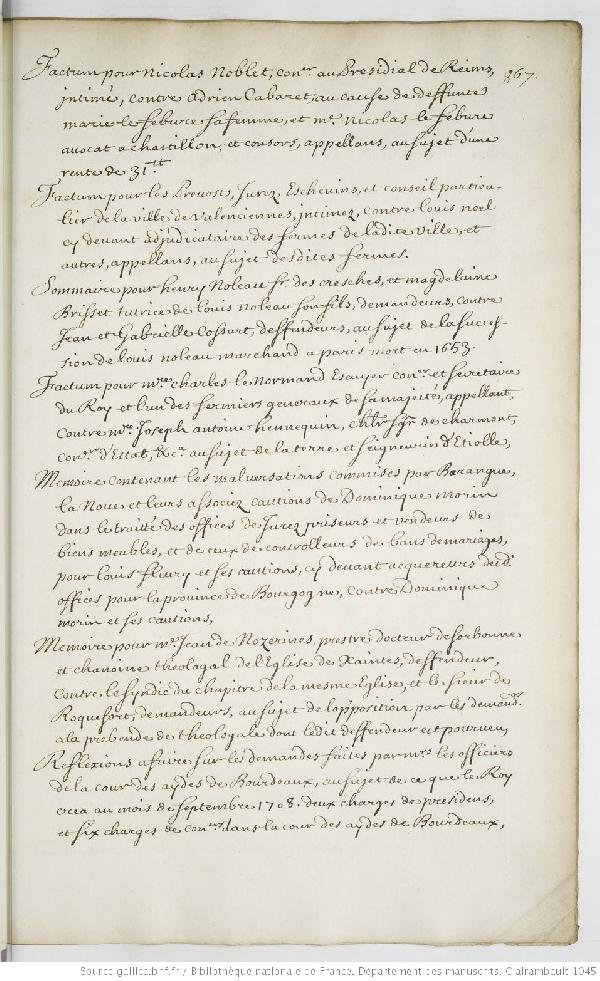 Factum pour Nicolas Noblet, con.er au Presidial de Reims, 867.
intimé, contre Adrien Cabaret, au cause de deffunte
marie le febure sa femme, et m.e Nicolas le febure
auocat a chastillon, et consors, appellans, au sujet d'une
rente de 31.tt
Factum pour les Prevosts, Jurez, Escheuins, et conseil particu-
lier de la ville de Valenciennes, intimez, contre Louis noel
cy deuant adjudicataire des fermes de ladite ville, et
autres, appellans, au sujet desdites fermes.
Sommaire pour henry Noleau s.r des cresches, et magdelaine
Brisset tutrice de louis noleau son fils, demandeurs, contre
Jean et Gabrielle Cossart, deffendeurs, au sujet de la succes-
sion de louis noleau marchand a paris mort en 1653.
Factum pour m.re charles le Normand Escuyer con.er et secretaire
du Roy et l'un des fermiers generaux de sa majesté, appellant,
contre m.re Joseph antoine hennequin, ch.lr sg.r de charmont,
con.er d'Estat, &c.a au sujet de la terre et seigneurie d'Etiolle,
Memoire contenant les maluersations commises par Barangue,
la Noue et leurs associez cautions de Dominique morin
dans le traitté des offices de Jurez priseurs et vendeurs de
biens meubles, et de ceux de controlleurs de bans de mariages,
pour louis fleury et ses cautions, cy deuant acquereurs desd.
offices pour la prouince de Bourgogne, contre Dominique
morin et ses cautions,
Memoire pour m.e Jean de Nozerines, prestre docteur de sorbonne
et chanoine theologal de l'Eglise de Xaintes, deffendeur,
contre le syndic du chapitre de la mesme Eglise, et le sieur de
Roquefort, demandeurs, au sujet de l'opposition par les demand.rs
a la prebende de theologale dont ledit deffendeur est pourueu,
Reflexions a faire sur les demandes faites par m.rs les officiers
de la cour des aydes de Bourdeaux, au sujet de ce que le Roy
crea au mois de septembre 1708. deux charges de presidens,
et six charges de con.ers dans la cour des aydes de Bourdeaux,
Source gallica.bnf.fr / Bibliothèque nationale de France. Département des manuscrits. Clairambault 1045